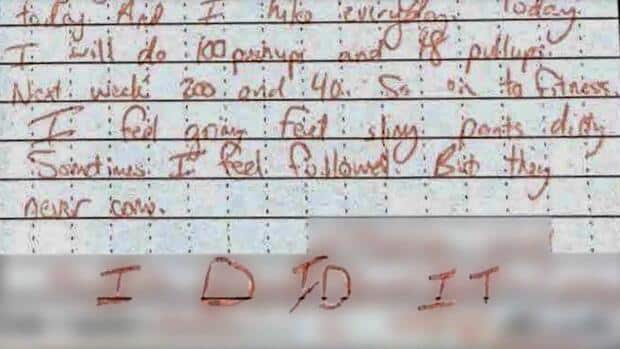 today. And I hate everything. Today
I will do 100 pushups and 48 pullups.
Next week 200 and 40. So on to fitness.
I feel feel pants dirty
Sometimes I feel followed. But they
never come.
I D I/D IT